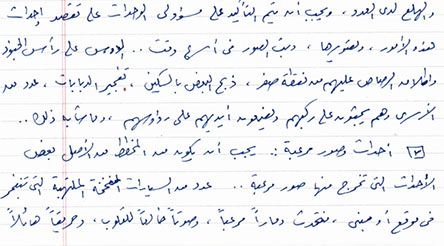 والهلع لدى العدو، ويجب أن يتم التأكيد على مسؤولي الوحدات على تقصد إحداث
هذه الأمور، وتصويرها، وبث الصور في أسرع وقت .. الدوس على رأس الجنود
وإطلاق الرصاص عليهم من نقطة صفر، ذبح البعض بالسكين، تفجير الدبابات، عدد من
الأسرى وهم يجثون على ركبهم ويضعون أيديهم على رؤوسهم، وما شابه ذلك ..
٣ أحداث وصور مرعبة: يجب أن يكون من المخطط من الأصل بعض
الأحداث التي تخرج منها صور مرعبة .. عدد من السيارات المفخخة الملتهبة التي تنفجر
في موقع أو مبنى، فتحدث دماراً مرعباً، وصوتاً خالعاً للقلوب، وحريقاً هائلاً